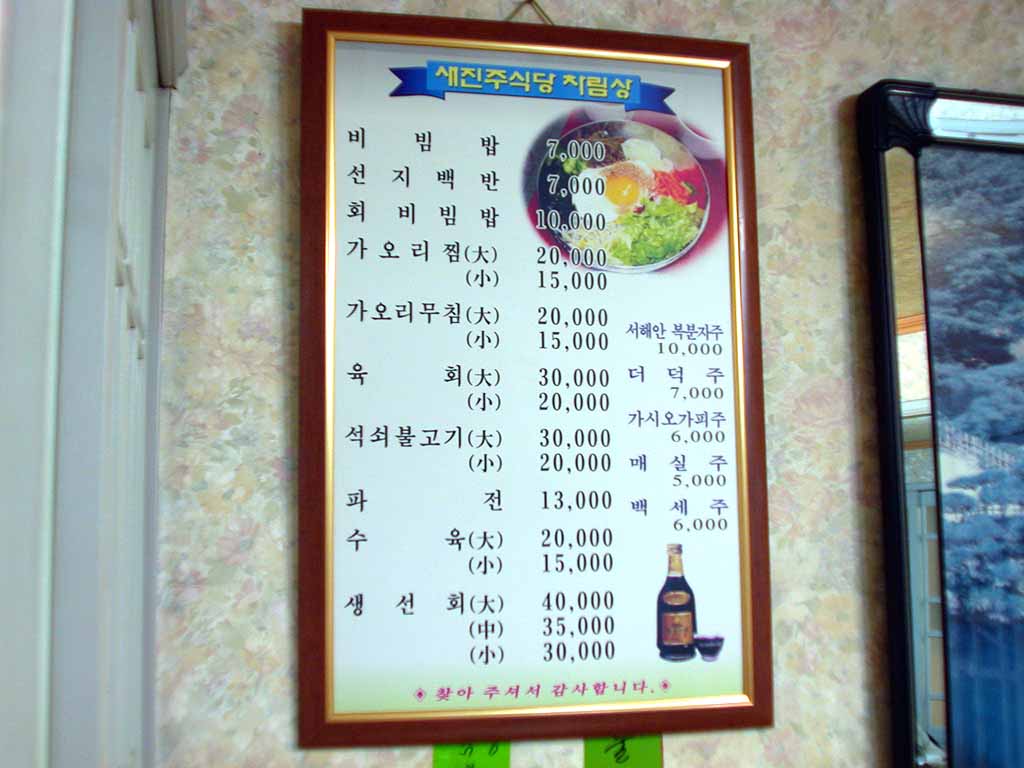 새진주식당 차림상
비빔밥 7,000
선지백반 7,000
회비빔밥 10,000
가오리찜(大) 20,000
(小) 15,000
가오리무침(大) 20,000
(小) 15,000
육회(大) 30,000
(小) 20,000
석쇠불고기(大) 30,000
(小) 20,000
파전 13,000
수육(大) 20,000
(小) 15,000
생선회(大) 40,000
(中) 35,000
(小) 30,000
서해안 복분자주
10,000
더덕주
7,000
가시오가피주
6,000
매실주
5,000
백세주
6,000
찾아 주셔서 감사합니다.